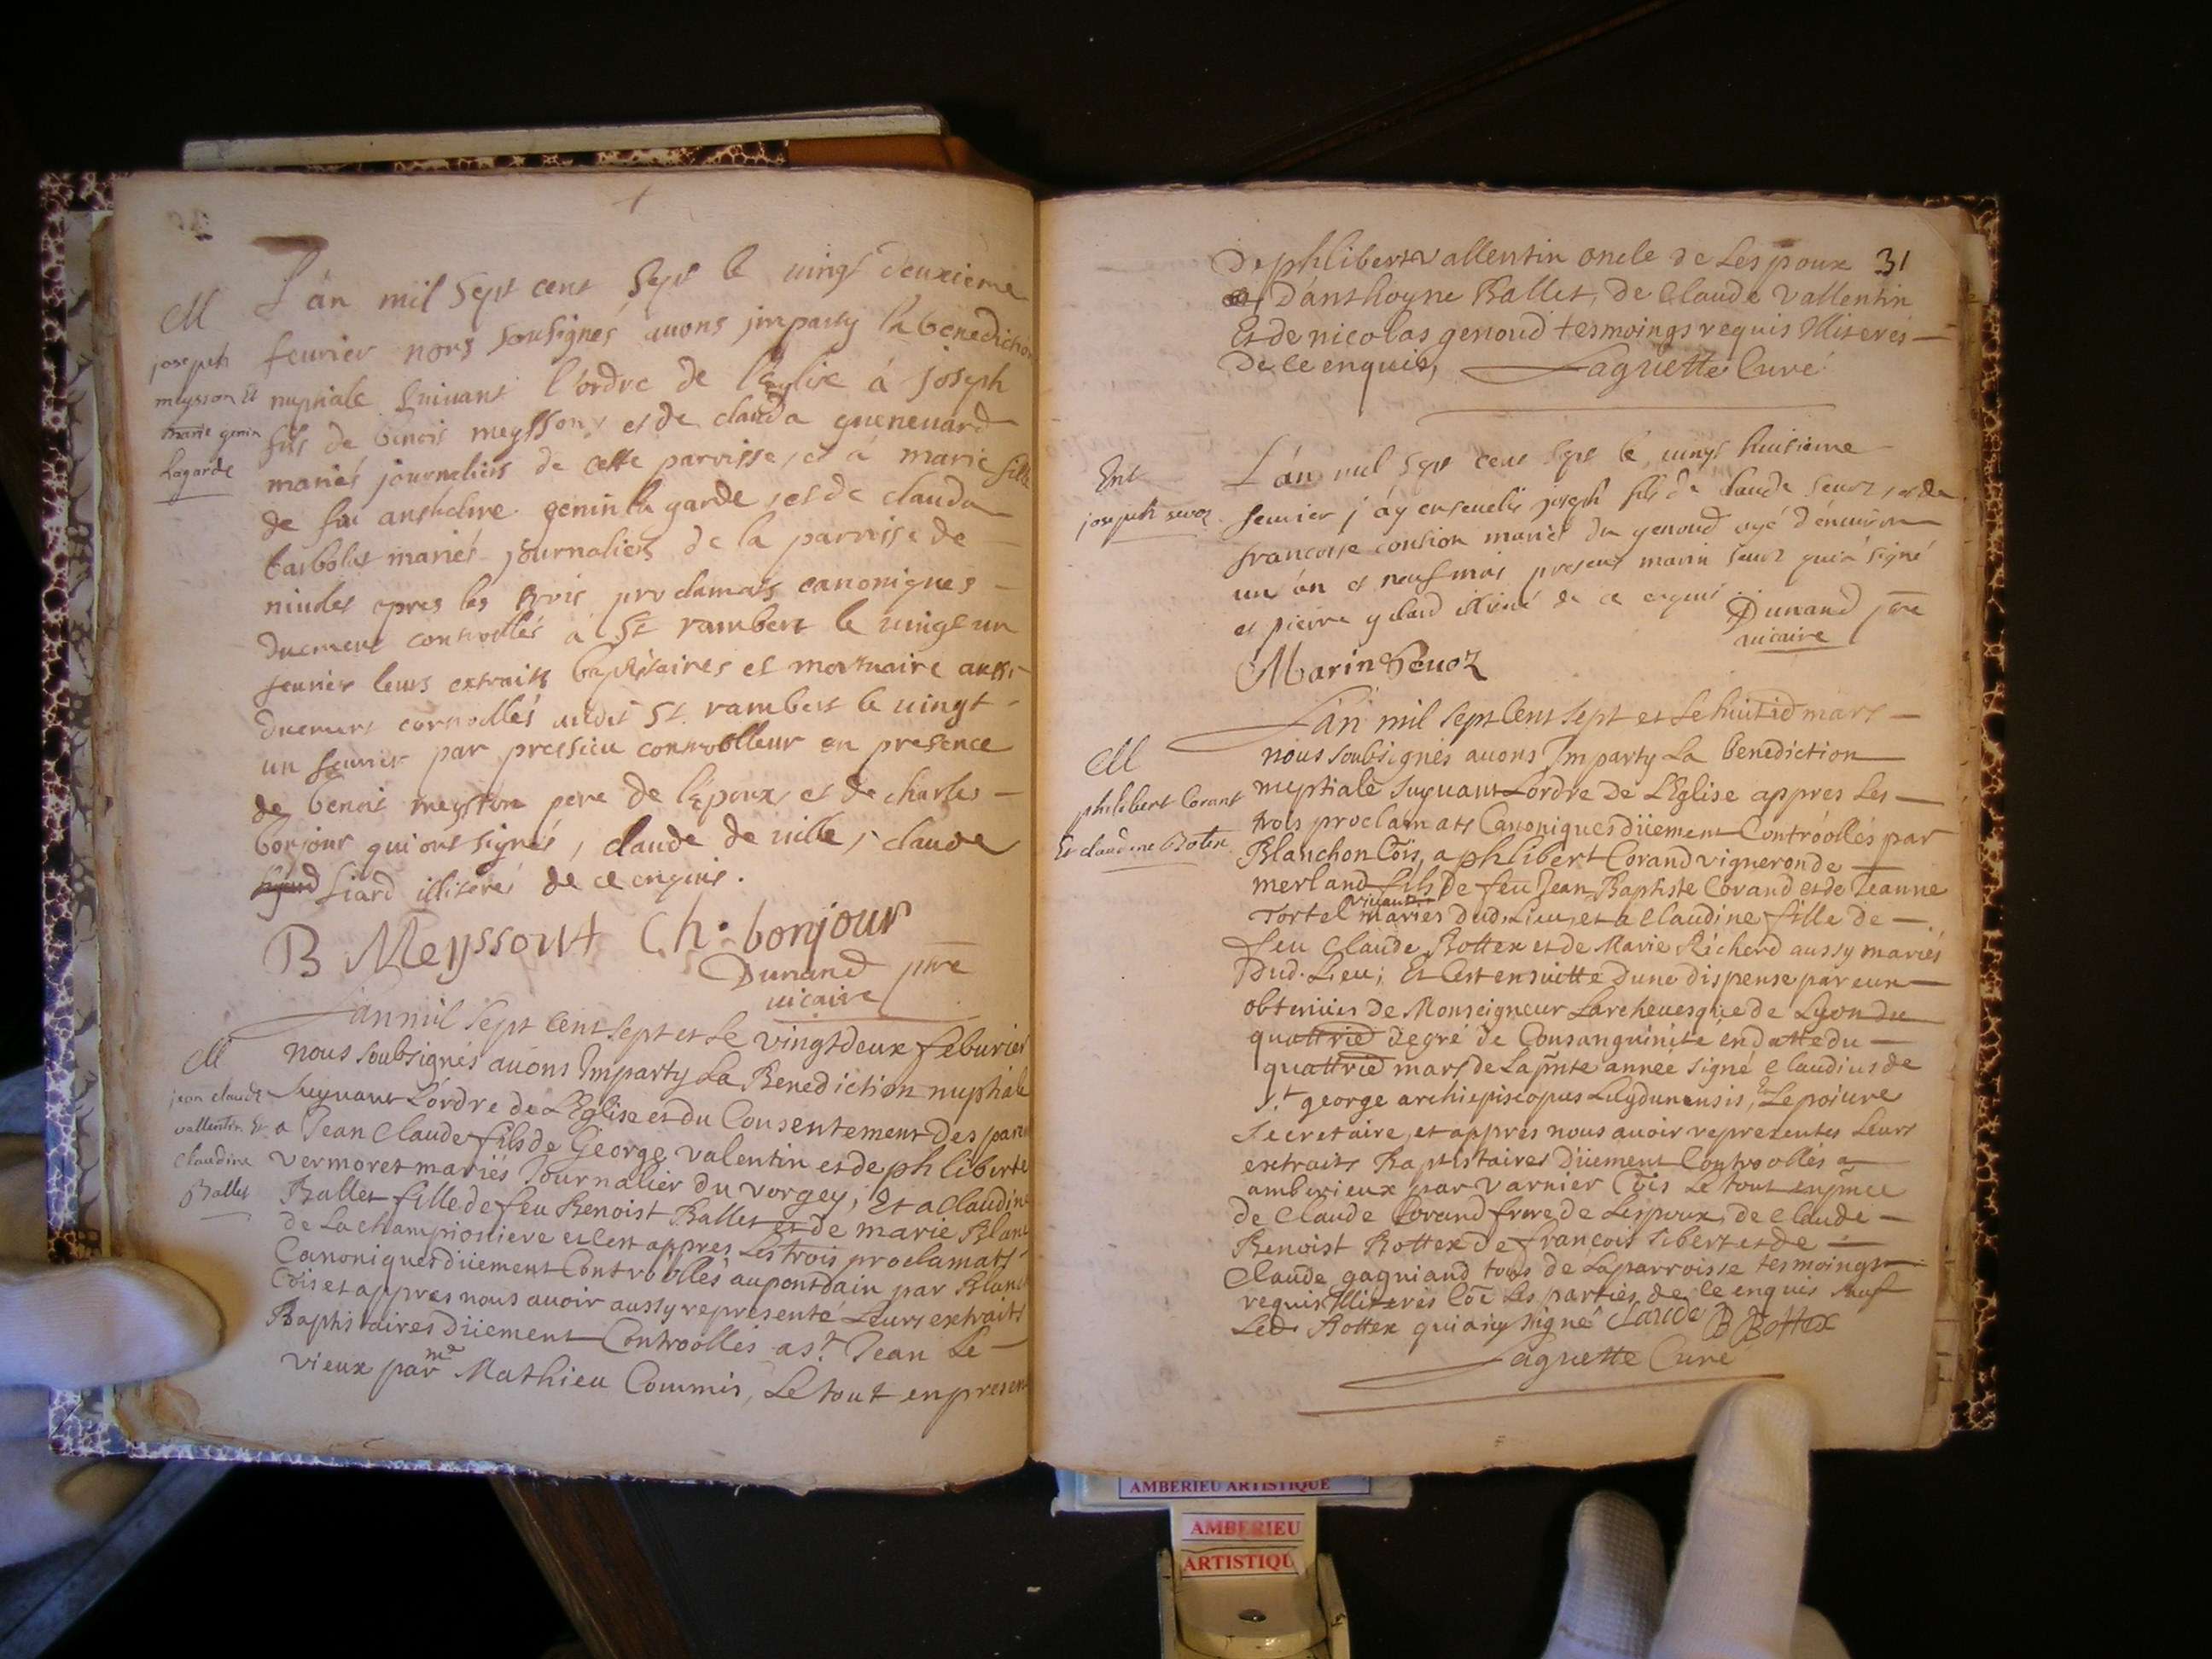 L'an mil sept cent sept le vingt deuxieme
M
joseph
meysson et
marie genin
lagarde
feurier nous sousignés auons imparty la benediction
nuptiale suiuant l'ordre de l'Eglise à joseph
fils de benois meysson, et de clauda gueneuard
mariés journaliers de cette parroisse, et à marie fille
de feu anthelme genin la garde, et de clauda
barbolat mariés journaliers de la parroisse de
niudes apres les trois proclamats canoniques
duement controllés à St rambert le vingt un
feurier leurs extraits baptistaires et mortuaire aussi
duement controllés audit St rambert le vingt
un feurier par pressieu controolleur en presence
de benois meysson pere de l'époux, et de charles
bonjour qui ont signés, claude de ville, claude
siard illiterés de ce enquis.
B Meyssout Ch. bonjour
Dunand ptre
uicaire
L'an mil sept cent sept et le vingtdeux feburier
M
jean claude
vallentin Et
claudine
Ballet
nous soubsignés auons Imparty La Benediction nuptiale
suyuant L'órdre de L'Eglise et du Consentement des paren
a Jean Claude fils de George valentin et de phliberte
vermoret mariés Journalier du vorgey; Et a Claudine
Ballet fille de feu Benoist Ballet et de marie Blanc
de La championiere et c'est appres Les trois proclamats
Canoniques düement Controollés au pontdain par Blanc
Cõis et appres nous auoir aussy representé Leurs extraits
Baptistaires düement Controollés a St Jean Le
vieux par me Mathieu Commis, Le tout en presen
31
De phlibert vallentin oncle de Lespoux
et d'anthoyne Ballet, de Claude vallentin
Et de nicolas genoud tesmoings requis Illiterés
De ce enquis, Laguette Curé
Ent
joseph seuoz
L'an mil sept cent sept le vingt huitieme
feurier j'ay enseuelis joseph fils de claude seuoz, et de
francoise coution mariés du genoud agé d'enuiron
un an et neuf mois present marin seuoz qui a signé
et pierre gelard illiteré de ce enquis
Dunand ptre
uicaire
Marin Seuoz
L'an mil sept Cent sept et Le huitiẽ mars
M
philibert Corant
Et claudine Botex
nous soubsignés auons Imparty La benediction
nuptiale suyuant L'ordre de L'Eglise appres Les
trois proclamats Canoniques düement Controollés par
Blanchon Cõis, a phlibert Corand vigneron de
merland fils de feu Jean Baptiste Corand et de Jeanne
Tortel viuants mariés dud. Lieu, et a Claudine fille de
feu Claude Bottex et de Marie Richerd aussy mariés
Dud. Lieu; Et C'est ensuitte d'une dispense par eux
obtenües de Monseigneur L'archeuesque de Lyon du
quattriẽ degré de Consanguinité en datte du
quattriẽ mars de La pñte année signé Claudius de
St george archiepiscopus Lugdunensis, Et Lepoiure
Secretaire, et appres nous auoir representés Leurs
extraits Baptistaires düement Controollés a
amberieux par varnier Cõis Le tout en pñce
de Claude Corand frere de Lespoux, de Claude
Benoist Bottex de francois sibert et de
Claude gagniand tous de La parroisse tesmoings
requis Illiterés Cõe Les parties, de ce enquis sauf
Led. Bottex qui a icy signé Claude B Bottex
Laguette Curé
AMBERIEU ARTISTIQUE
AMBERIEU
ARTISTIQU